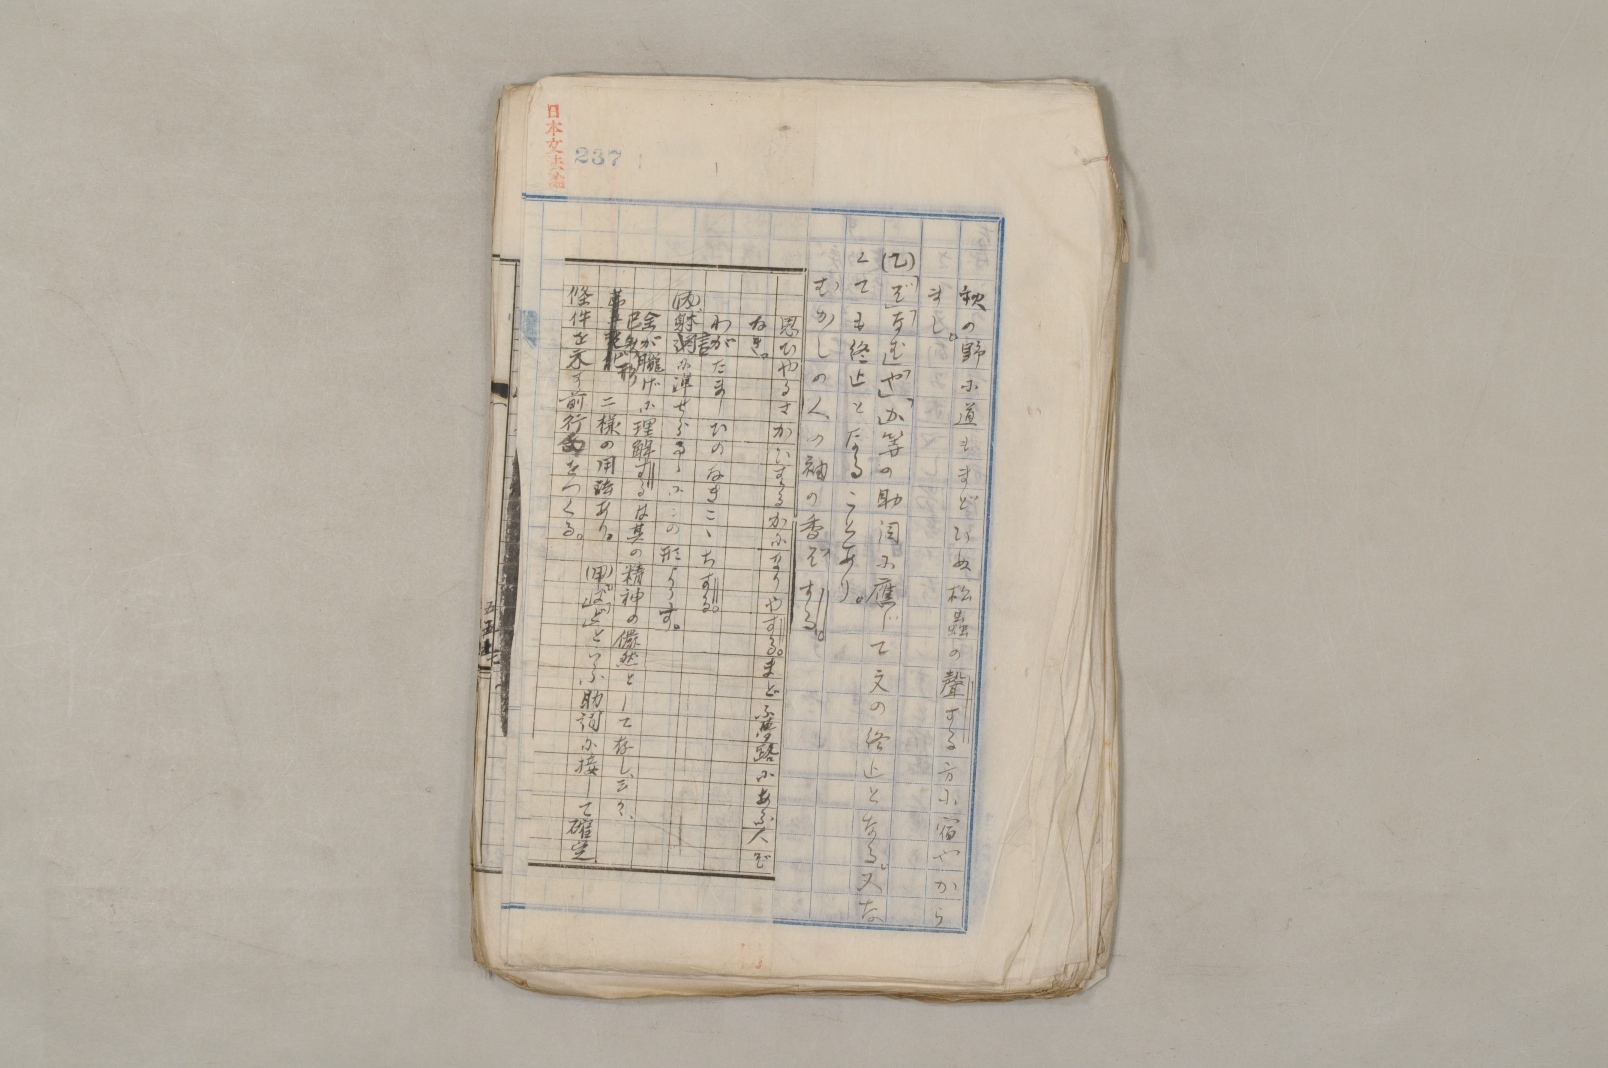 日本文法論
237
秋の野に道もまどひぬ松蟲の聲する方に宿やから
まし。
(乙)「ぞ」「なむ」「や」「か」等の助詞に應じて文の終止となる。又な
くても終止となることあり。
むかしの人の袖の香ぞする。
思ひやるさかひはるかになりやする。まどふ夢路にあふ人ぞ
なき。
わがたましひのなきこゝちする。
(丙)躰言に準せらるゝにこの形よりす。
余が朧げに理解するは其の精神の儼然として存し云々、
已然形 二様の用法あり。(甲)「ば」「ど」といふ助詞に接して確定
條件を示す前行句をつくる。